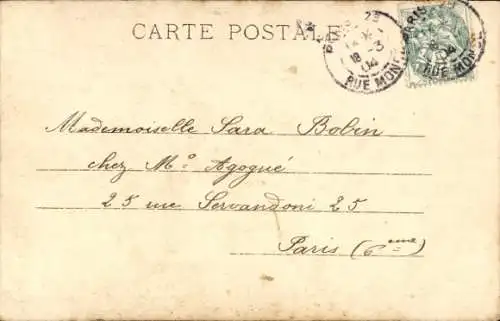 CARTE POSTALE
PARIS
18 -3
04
RUE MON
PARIS
18
04
RUE MON
Mademoiselle Sara Bobin
chez Mº Agogué
25 rue Servandoni 25
Paris (6eme)